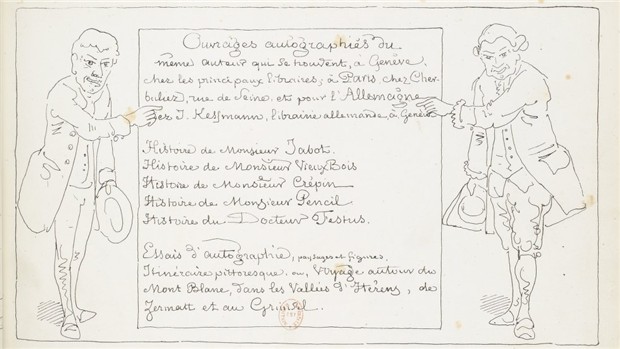 Ouvrages autographiés du
même auteur qui se trouvent, à Genève,
chez les principaux libraires; à Paris chez Cher-
buliez, rue de Seine et pour l'Allemagne
chez J. Kessmann, librairie allemande, à Genève
Histoire de Monsieur Jabot.
Histoire de Monsieur Vieux Bois
Histoire de Monsieur Crépin
Histoire de Monsieur Pencil.
Histoire du Docteur Festus.
Essais d'autographie, paysages et figures.
Itinéraire pittoresque, ou, Voyage autour du
Mont Blanc, dans les Vallées d'Hérens, de
Zermatt et au Grimsel.